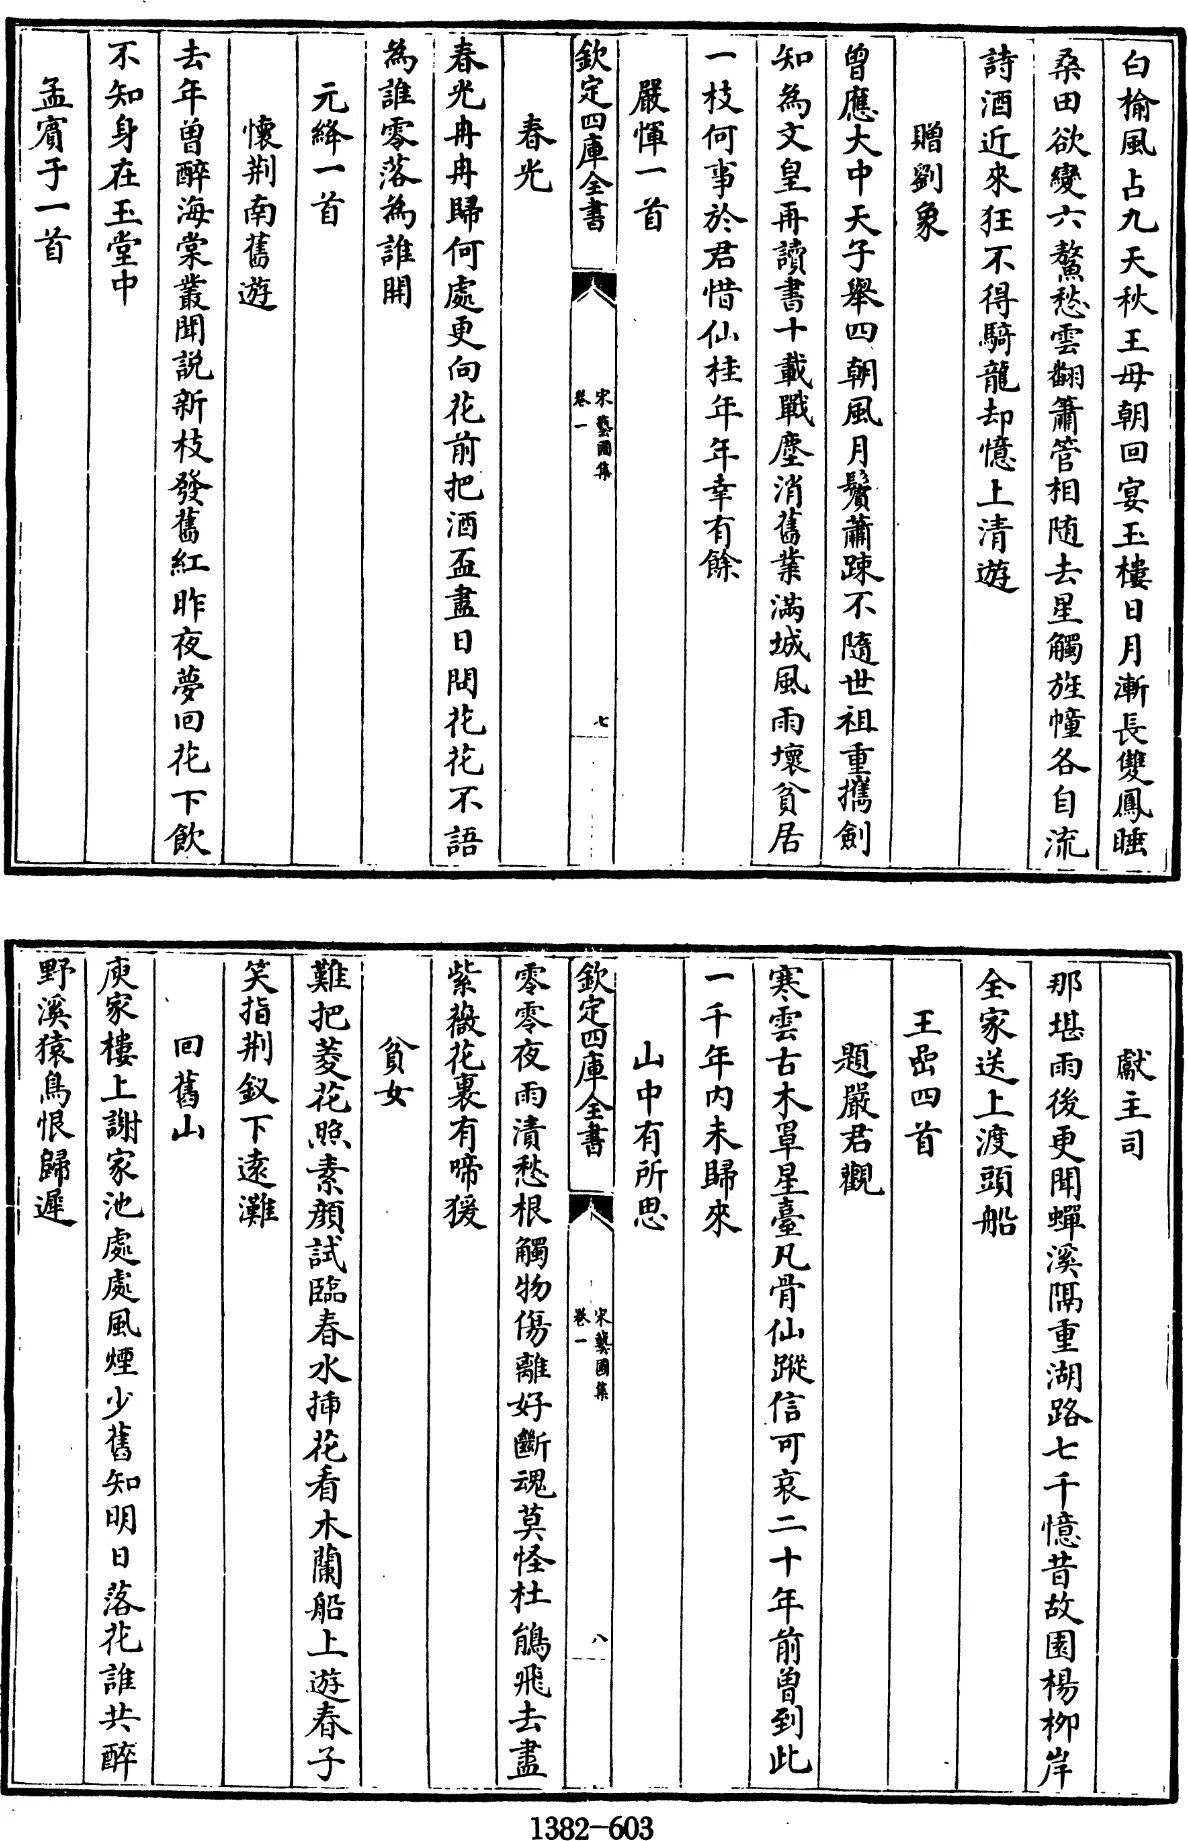 白榆風占九天秋王母朝回宴玉樓日月漸長雙鳳睡
桑田欲變六鰲愁雲翻簫管相随去星觸旌幢各自流
詩酒近來狂不得騎龍却憶上清遊
贈劉象
曽應大中天子舉四朝風月鬢蕭踈不隨世祖重攜劍
知為文皇再讀書十載戰塵消舊業滿城風雨壞貧居
一枝何事於君惜仙桂年年幸有餘
嚴惲一首
欽定四庫全書
宋藝圃集
卷一
七
春光
春光冉冉歸何處更向花前把酒盃盡日問花花不語
為誰零落為誰開
元絳一首
懷荆南舊遊
去年曽醉海棠叢聞説新枝發舊紅昨夜夢回花下飲
不知身在玉堂中
孟賓于一首
獻主司
那堪雨後更聞蟬溪隔重湖路七千憶昔故園楊柳岸
全家送上渡頭船
王嵒四首
題嚴君觀
寒雲古木罩星臺凡骨仙蹤信可哀二十年前曽到此
一千年内未歸來
山中有所思
欽定四庫全書
宋藝圃集
卷一
八
零零夜雨漬愁根觸物傷離好斷魂莫怪杜鵑飛去盡
紫薇花裏有啼猨
貧女
難把菱花照素顔試臨春水揷花看木蘭船上遊春子
笑指荆釵下遠灘
回舊山
庾家樓上謝家池處處風煙少舊知明日落花誰共醉
野溪猿鳥恨歸遲
1382-603